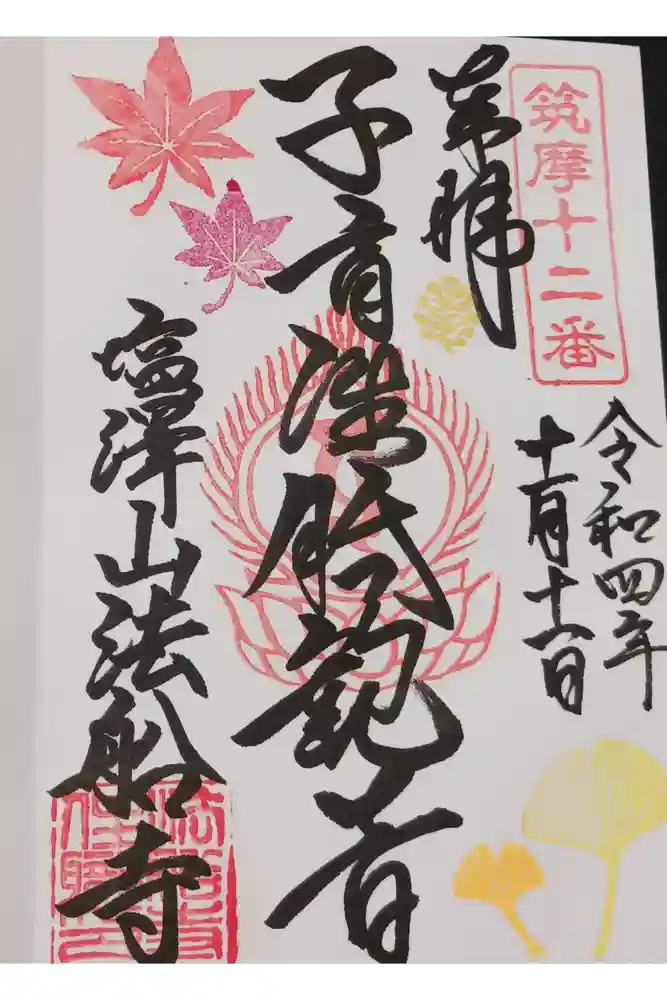 筑摩十二番
令和四年
十一月十一日
奉拝
子育深胝観音
塩澤山法船寺